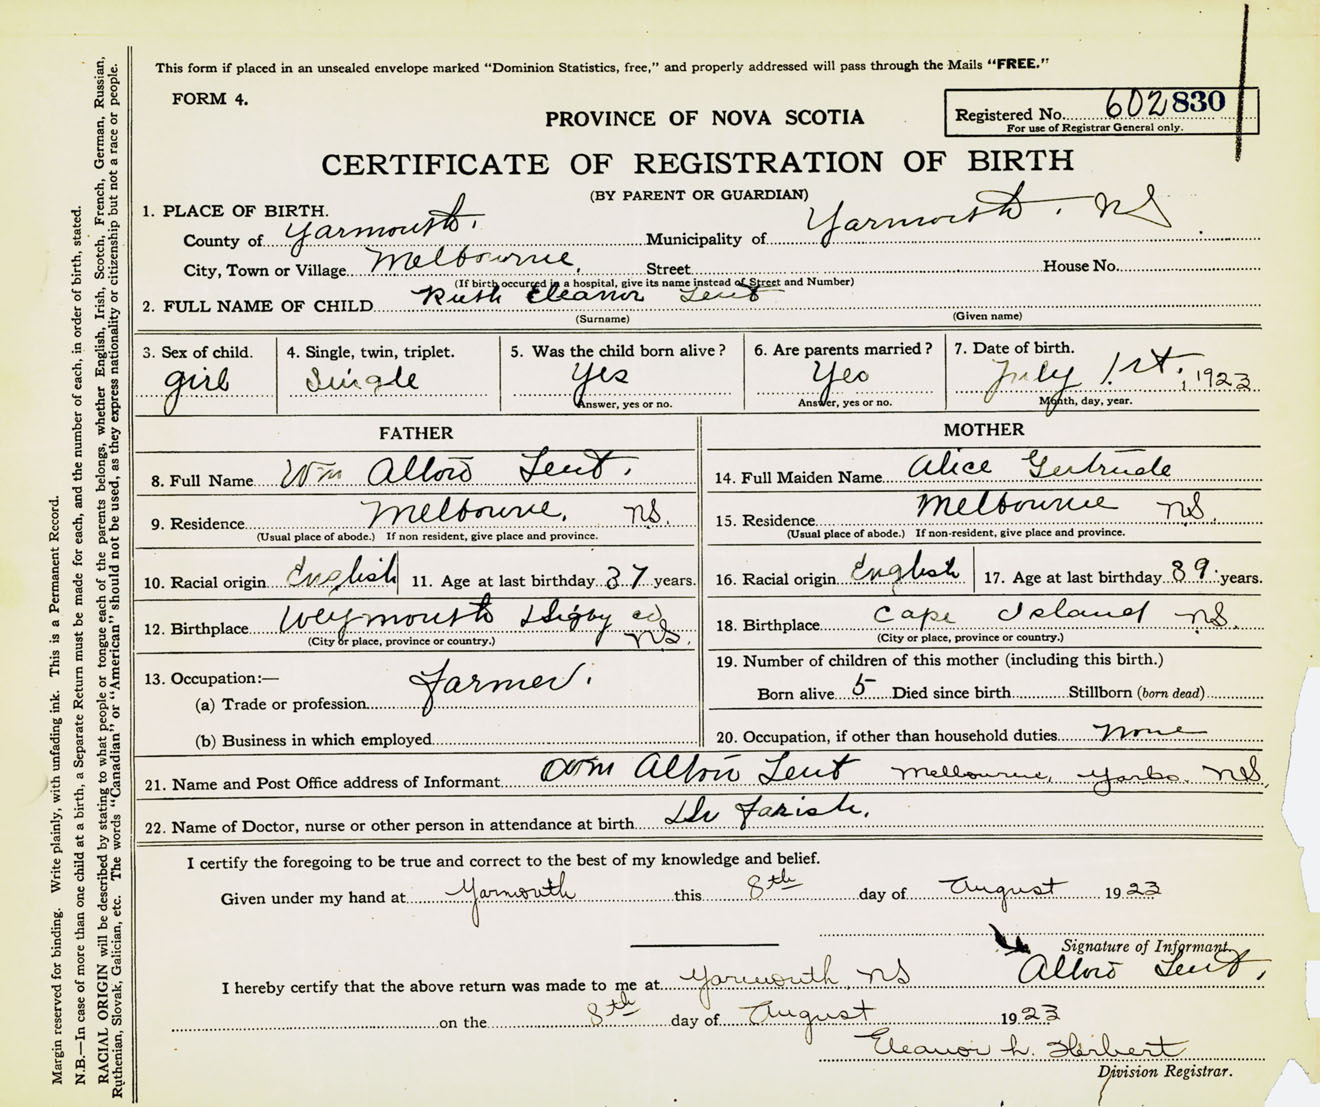 This form if placed in an unsealed envelope marked “Dominion Statistics, free,” and properly addressed will pass through the Mails “FREE.”
FORM 4.
Registered No. 602830
For use of Registrar General only.
PROVINCE OF NOVA SCOTIA
CERTIFICATE OF REGISTRATION OF BIRTH
(BY PARENT OR GUARDIAN)
1. PLACE OF BIRTH.
County of Yarmouth. Municipality of Yarmouth. NS
City, Town or Village Melbourne, Street House No.
(If birth occurred in a hospital, give its name instead of Street and Number)
2. FULL NAME OF CHILD Ruth Eleanor Lent
(Surname) (Given name)
3. Sex of child. 4. Single, twin, triplet. 5. Was the child born alive? 6. Are parents married? 7. Date of birth.
girl Single Yes Yes July 1st, 1923
Answer, yes or no. Answer, yes or no. Month, day, year.
FATHER MOTHER
8. Full Name Wm Lent. 14. Full Maiden Name Alice Gertrude
9. Residence Melbourne, NS. 15. Residence Melbourne NS.
(Usual place of abode.) If non resident, give place and province. (Usual place of abode.) If non-resident, give place and province.
10. Racial origin English 11. Age at last birthday 37 years. 16. Racial origin English 17. Age at last birthday 39 years.
12. Birthplace Weymouth Digby co NS. 18. Birthplace Cape Island NS.
(City or place, province or country.) (City or place, province or country.)
13. Occupation:— Farmer.
(a) Trade or profession
(b) Business in which employed
19. Number of children of this mother (including this birth.)
Born alive 5 Died since birth Stillborn (born dead)
20. Occupation, if other than household duties none
21. Name and Post Office address of Informant Wm Lent Melbourne, NS,
22. Name of Doctor, nurse or other person in attendance at birth Dr Farish.
I certify the foregoing to be true and correct to the best of my knowledge and belief.
Given under my hand at Yarmouth this 8th day of August 1923
Signature of Informant
Lent,
I hereby certify that the above return was made to me at Yarmouth, NS
on the 8th day of August 1923
Eleanor L. Herbert
Division Registrar.
Margin reserved for binding. Write plainly, with unfading ink. This is a Permanent Record.
N.B.—In case of more than one child at a birth, a Separate Return must be made for each, and the number of each, in order of birth, stated.
RACIAL ORIGIN will be described by stating to what people or tongue each of the parents belongs, whether English, Irish, Scotch, French, German, Russian,
Ruthenian, Slovak, Galician, etc. The words “Canadian” or “American” should not be used, as they express nationality or citizenship but not a race or people.